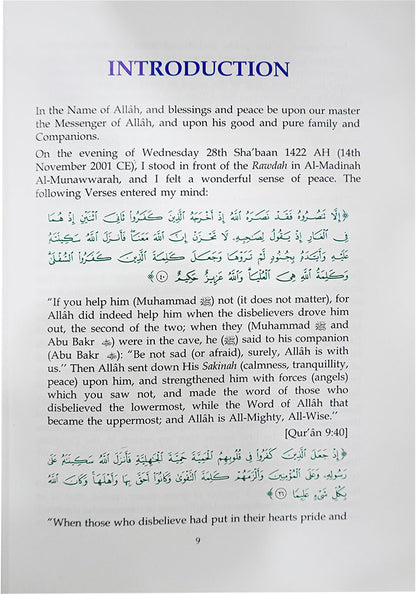 INTRODUCTION
In the Name of Allâh, and blessings and peace be upon our master
the Messenger of Allâh, and upon his good and pure family and
Companions.
On the evening of Wednesday 28th Sha'baan 1422 AH (14th
November 2001 CE), I stood in front of the Rawdah in Al-Madinah
Al-Munawwarah, and I felt a wonderful sense of peace. The
following Verses entered my mind:
﴿إِلَّا تَنصُرُوهُ فَقَدْ نَصَرَهُ اللَّهُ إِذْ أَخْرَجَهُ الَّذِينَ كَفَرُوا ثَانِيَ اثْنَيْنِ إِذْ هُمَا
فِي الْغَارِ إِذْ يَقُولُ لِصَاحِبِهِ لَا تَحْزَنْ إِنَّ اللَّهَ مَعَنَا فَأَنزَلَ اللَّهُ سَكِينَتَهُ
عَلَيْهِ وَأَيَّدَهُ بِجُنُودٍ لَّمْ تَرَوْهَا وَجَعَلَ كَلِمَةَ الَّذِينَ كَفَرُوا السُّفْلَىٰ
وَكَلِمَةُ اللَّهِ هِيَ الْعُلْيَا وَاللَّهُ عَزِيزٌ حَكِيمٌ ٤٠﴾
“If you help him (Muhammad ﷺ) not (it does not matter), for
Allâh did indeed help him when the disbelievers drove him
out, the second of the two; when they (Muhammad ﷺ and
Abu Bakr) were in the cave, he (ﷺ) said to his companion
(Abu Bakr): “Be not sad (or afraid), surely, Allâh is with
us.” Then Allâh sent down His Sakinah (calmness, tranquillity,
peace) upon him, and strengthened him with forces (angels)
which you saw not, and made the word of those who
disbelieved the lowermost, while the Word of Allâh that
became the uppermost; and Allâh is All-Mighty, All-Wise.”
[Qur'ân 9:40]
﴿إِذْ جَعَلَ الَّذِينَ كَفَرُوا فِي قُلُوبِهِمُ الْحَمِيَّةَ حَمِيَّةَ الْجَاهِلِيَّةِ فَأَنزَلَ اللَّهُ سَكِينَتَهُ عَلَىٰ
رَسُولِهِ وَعَلَى الْمُؤْمِنِينَ وَأَلْزَمَهُمْ كَلِمَةَ التَّقْوَىٰ وَكَانُوا أَحَقَّ بِهَا وَأَهْلَهَا وَكَانَ اللَّهُ
بِكُلِّ شَيْءٍ عَلِيمًا ٢٦﴾
“When those who disbelieve had put in their hearts pride and
9